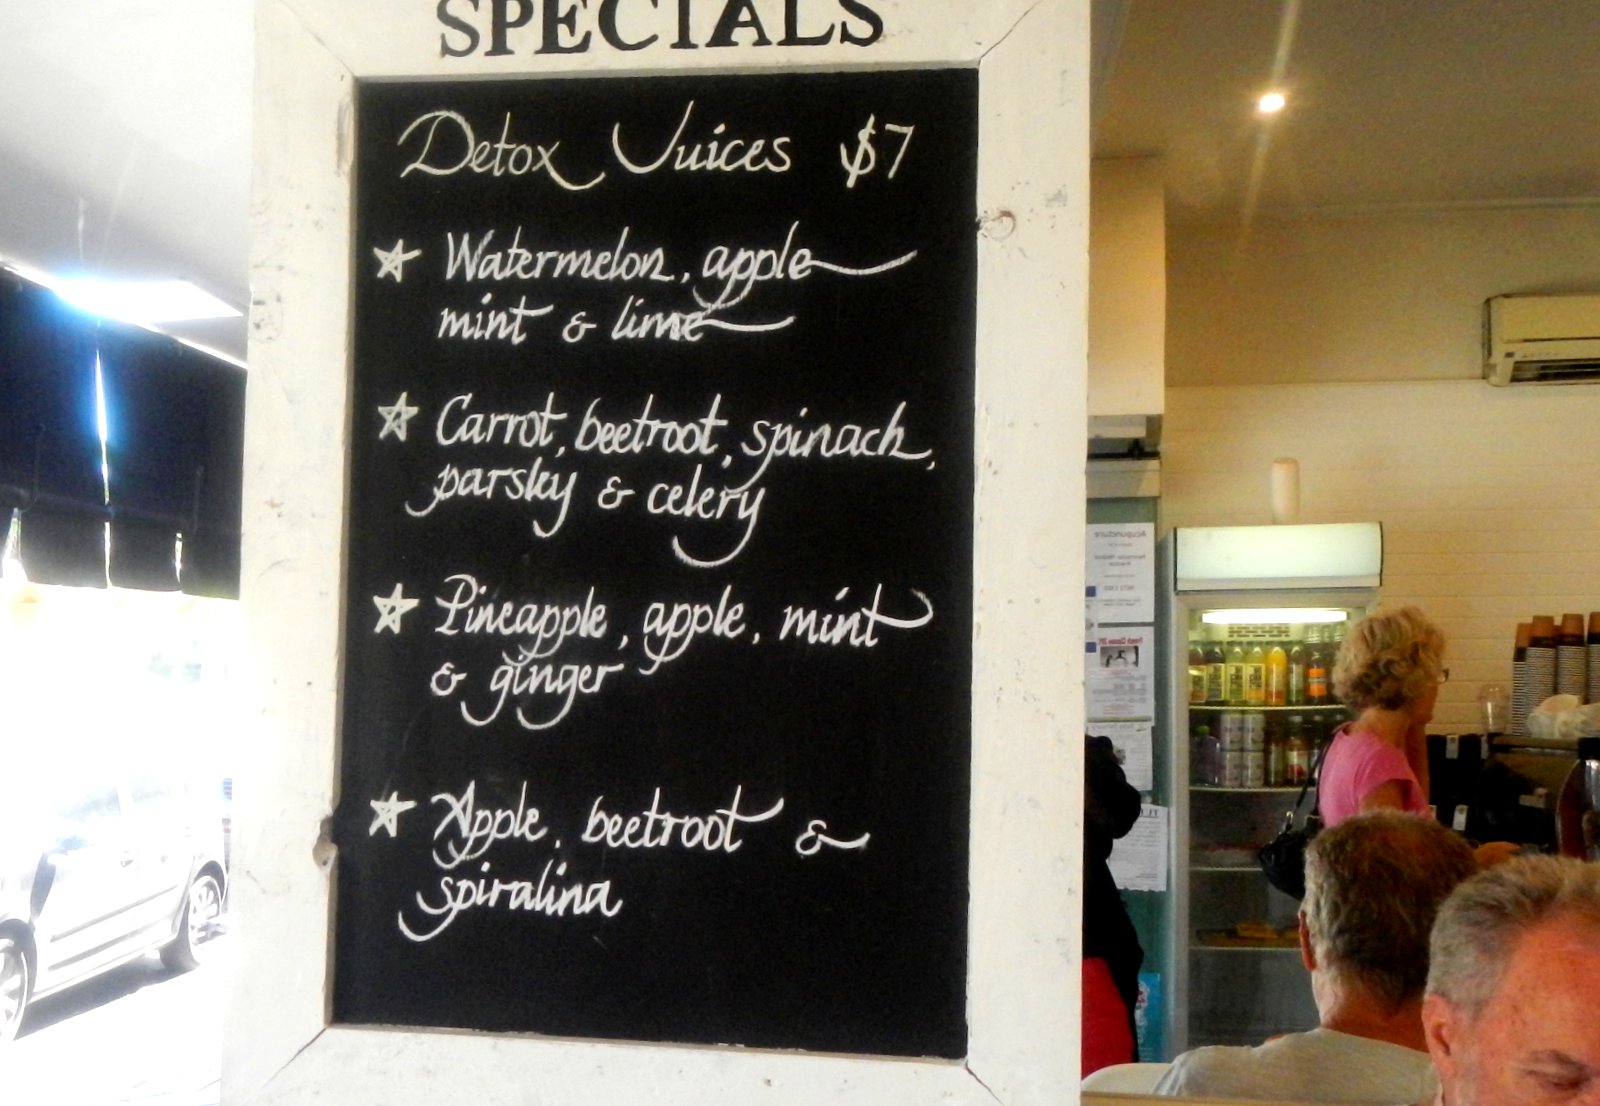 SPECIALS
Detox Juices $7
Watermelon, apple
mint & lime
Carrot, beetroot, spinach,
parsley & celery
Pineapple, apple, mint
& ginger
Apple, beetroot &
spiralina
Acupuncture